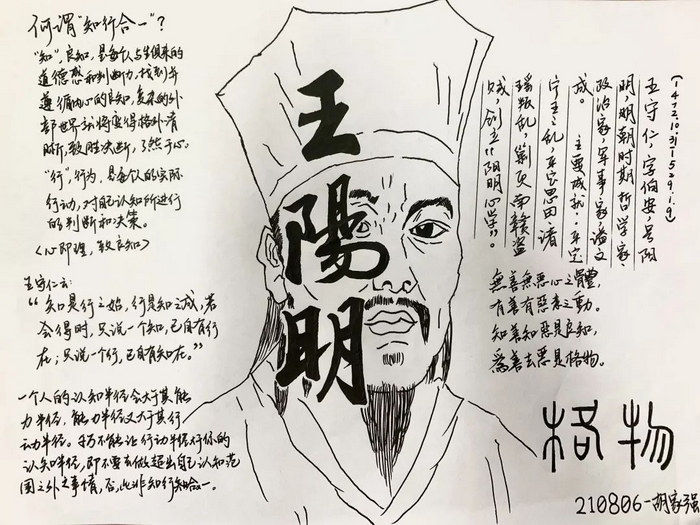 何谓“知行合一”?
“知”，良知，是每个人与生俱来的
道德感和判断力，找到并
遵循内心的良知，复杂的外
部世界就将变得格外清
晰，致胜决断，了然于心。
“行”，行为，是每个人的实际
行动，对自己认知所进行
的判断和决策。
（心即理，致良知）
王守仁云：
“知是行之始，行是知之成，若
会得时，只说一个知，已自有行
在；只说一个行，已自有知在。”
一个人的认知半径会大于其能
力半径，能力半径又大于其行
动半径。
认知半径，即不要去做超出自己认知范
围之外之事情，否，此非知行知合一。
王陽明
(1472.10.31-1529.1.9)
王守仁，字伯安，号阳
明，明朝时期哲学家、
政治家、军事家
成。主要成就：平定
宁王之乱，平定思田诸
瑶叛乱，剿灭南赣盗
贼，创立“阳明心学”。
無善無惡心之體，
有善有惡意之動。
知善知惡是良知，
為善去惡是格物。
格物
210806-胡家强